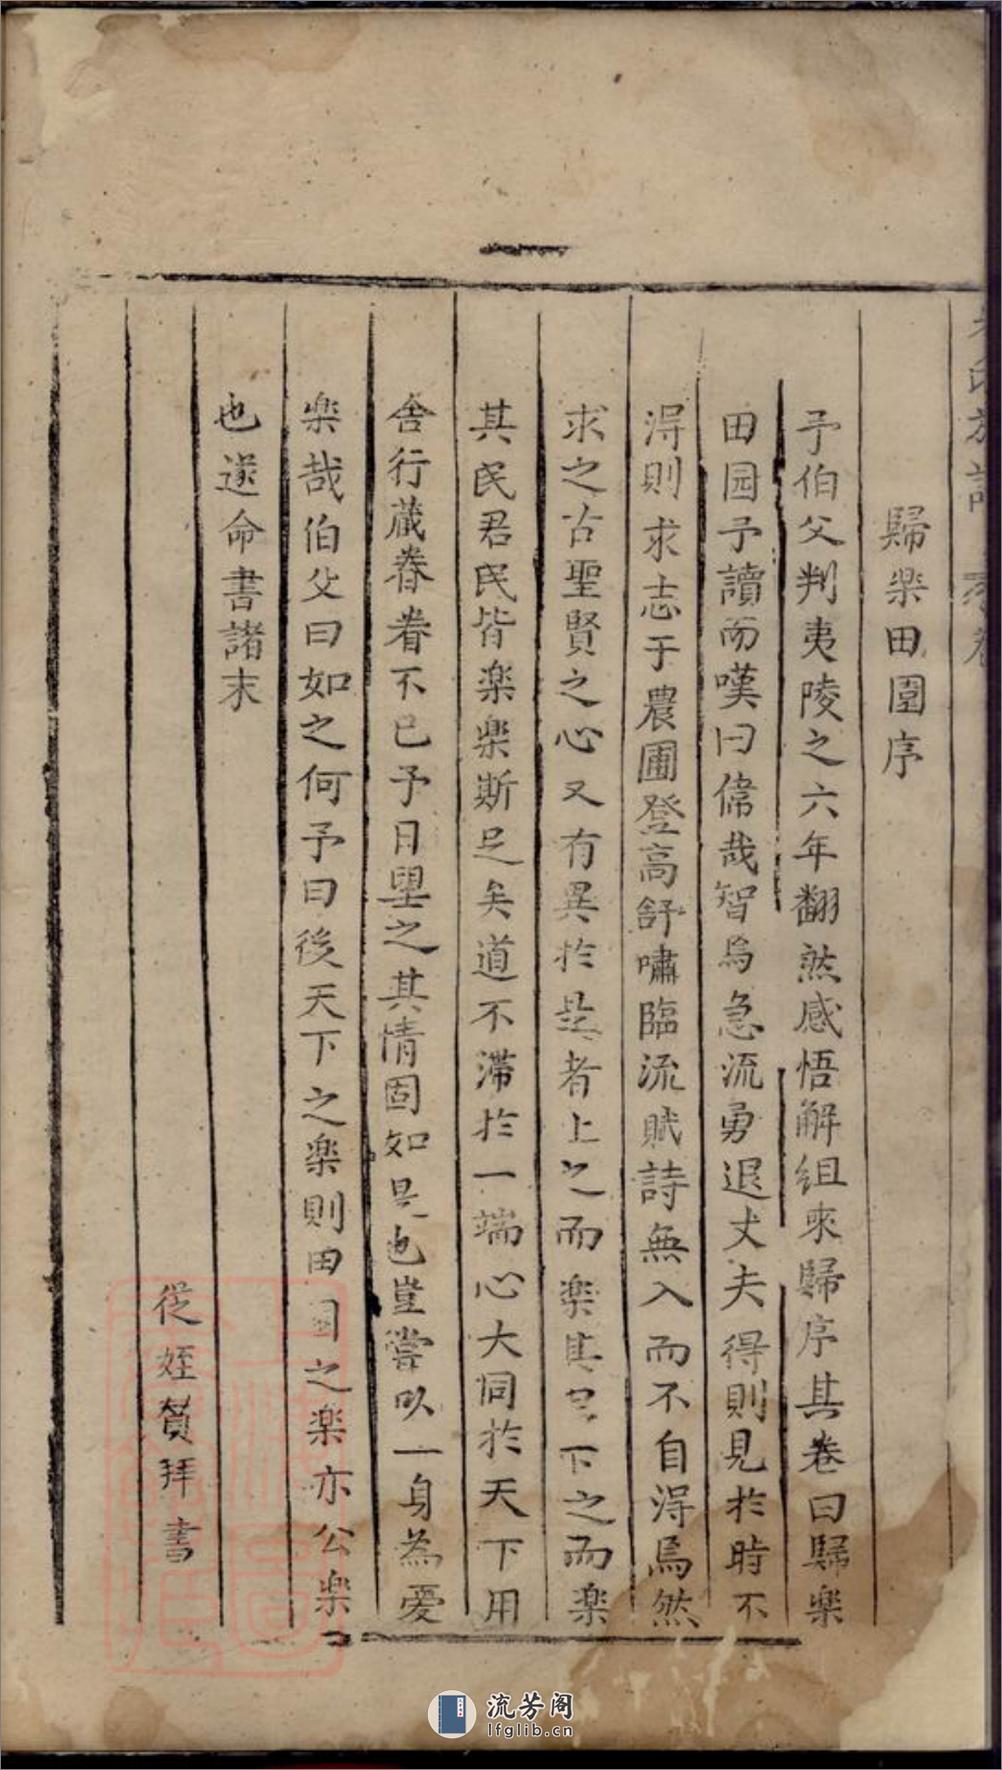 歸楽田園序
予伯父判夷陵之六年翻然感悟解組來歸序其卷曰歸楽
田园予讀而嘆曰偉哉智烏急流勇退丈夫得則見於時不
淂則求志于農圃登高舒嘯臨流賦詩無入而不自淂焉然
求之古聖賢之心又有異於是者上之而楽其君下之而楽
其民君民皆楽楽斯足矣道不滯於一端心大同於天下用
舍行蔵眷眷不已予日望之其情固如是也豈嘗以一身為憂
楽哉伯父曰如之何予曰後天下之楽則田园之楽亦公楽
也遂命書諸末
從姪贠拜書
流芳阁
lfglib.cn